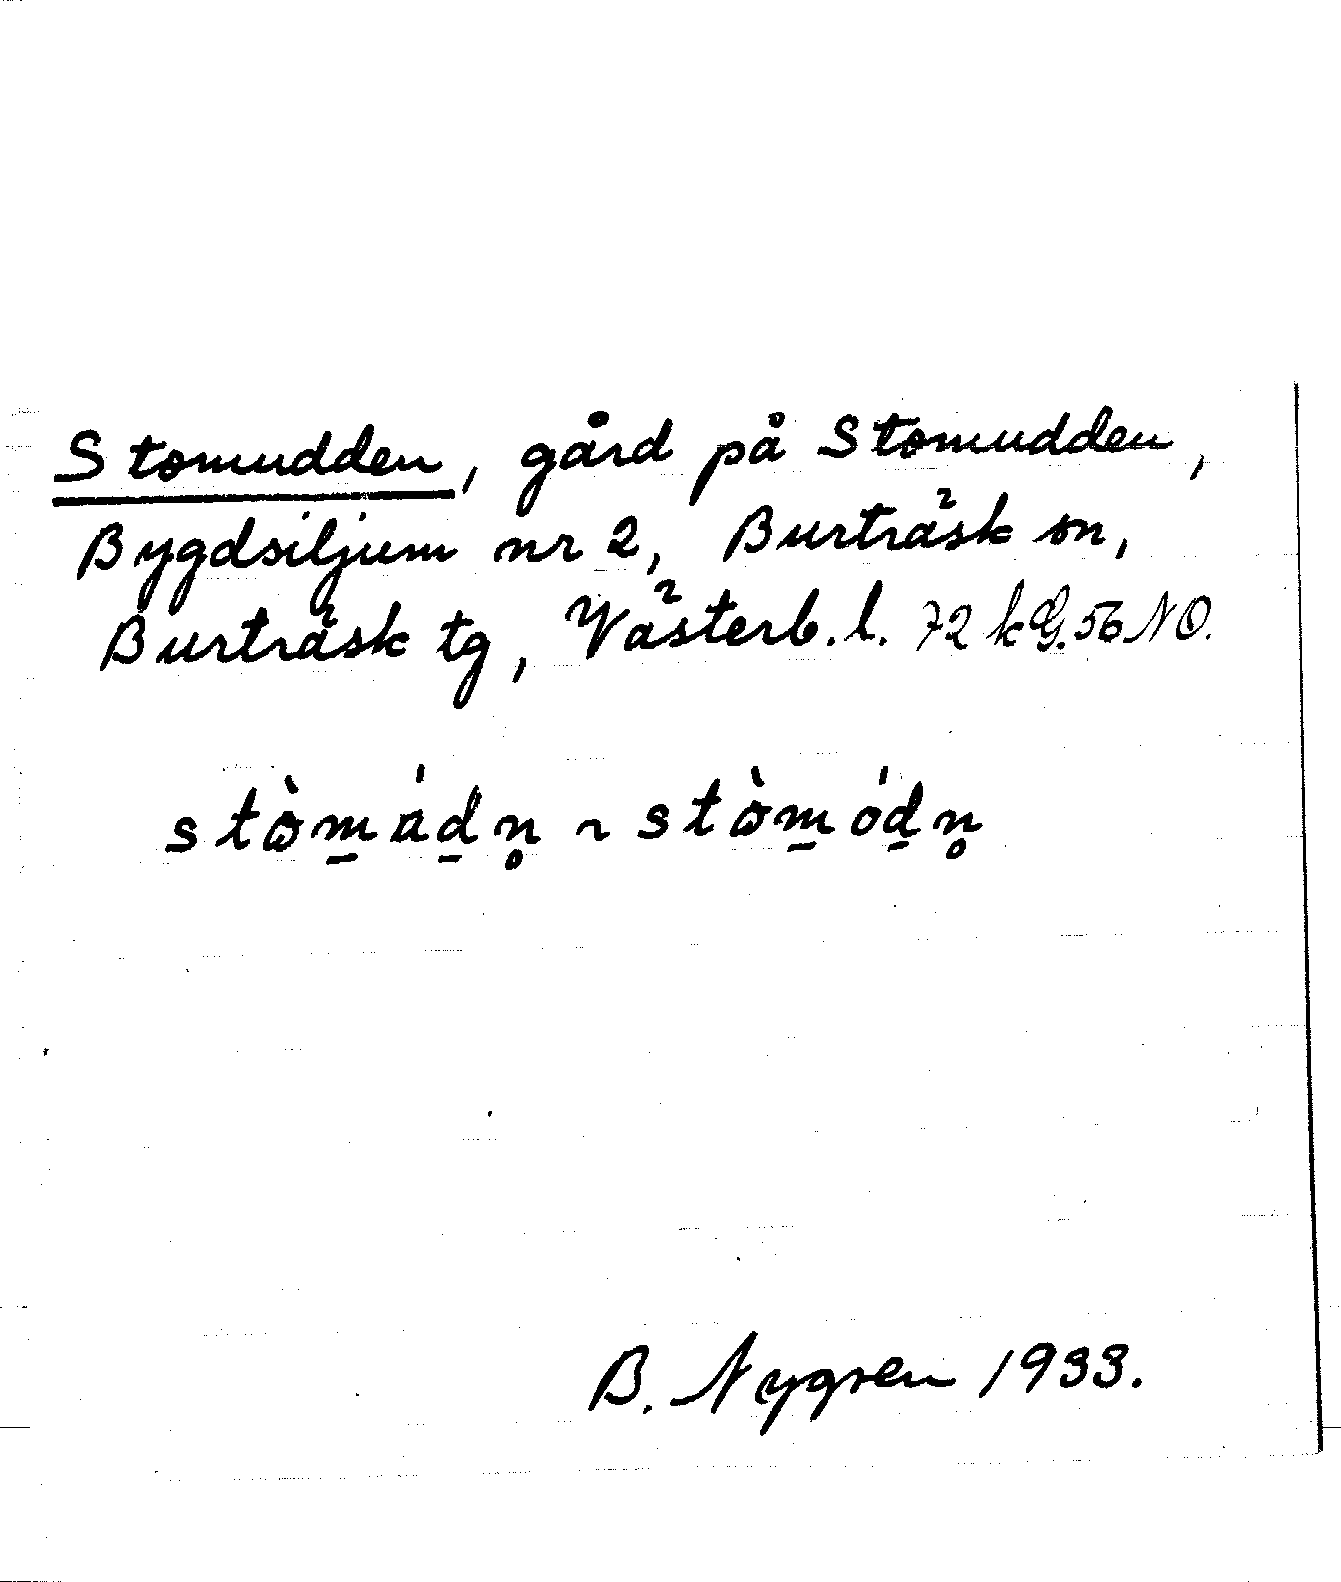 Stomudden, gård på Stomudden,
Bygdsiljum nr 2, Burträsk sn,
Burträsk tg, Västerb. l. 72 kG. 56 NO.
stòm̲ád̲n̥ ~ stòm̲ód̲n̥
B. Nygren 1933.